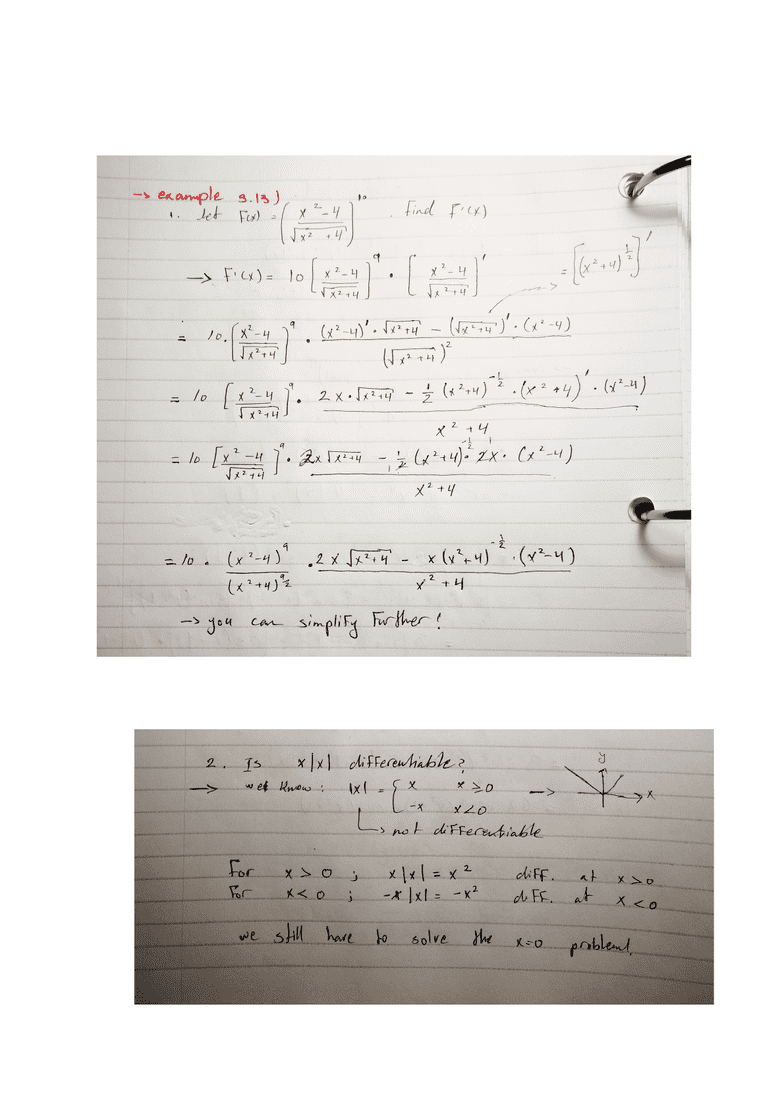 → example 3.13)
1. Let F(x) = ( x²-4 / √x²+4 )^10 . Find F'(x)
→ F'(x) = 10 [ x²-4 / √x²+4 ]^9 · [ x²-4 / √x²+4 ]' = [ (x²+4)^1/2 ]'
= 10. [ x²-4 / √x²+4 ]^9 . (x²-4)' · √x²+4 - (√x²+4)' · (x²-4) / (√x²+4)²
= 10 [ x²-4 / √x²+4 ]^9 . 2x·√x²+4 - 1/2 (x²+4)^-1/2 · (x²+4)' · (x²-4) / x²+4
= 10 [ x²-4 / √x²+4 ]^9 · 2x√x²+4 - 1/2 (x²+4)^-1/2 · 2x · (x²-4) / x²+4
= 10 . (x²-4)^9 / (x²+4)^9/2 . 2x√x²+4 - x(x²+4)^-1/2 · (x²-4) / x²+4
→ you can simplify Further!
2. Is x|x| differentiable?
→ we know: |x| = { x x≥0 → y
-x x<0 x
↳ not differentiable
For x>0 ; x|x| = x² diff. at x>0
For x<0 ; -x|x| = -x² diff. at x<0
we still have to solve the x=0 problem!